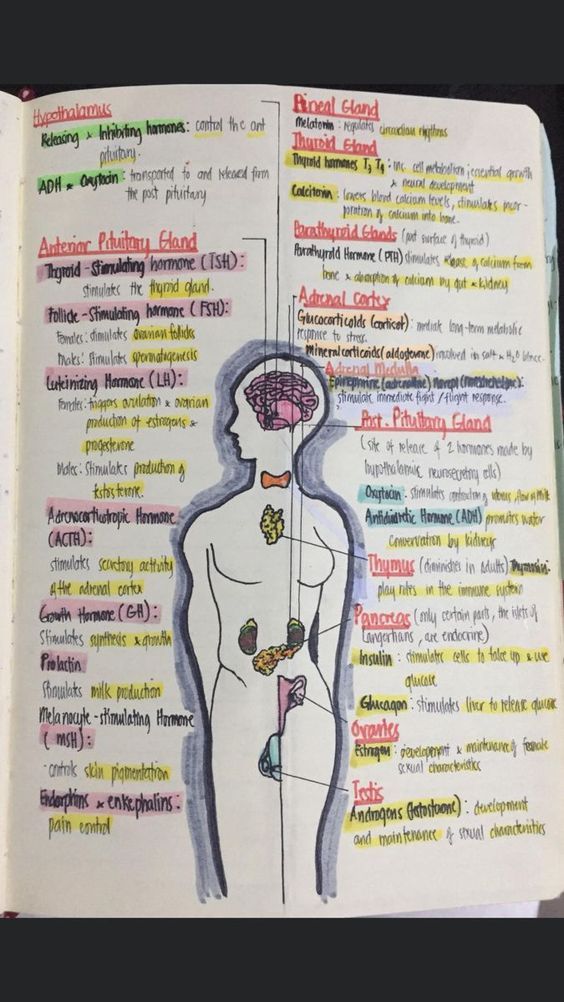 Hypothalamus
Releasing & Inhibiting hormones: control the ant
pituitary.
ADH & Oxytocin: transported to and released from
the post pituitary
Anterior Pituitary Gland
Thyroid-stimulating hormone (TSH):
stimulates the thyroid gland.
Follicle-Stimulating hormone (FSH):
Females: stimulates ovarian follicles
Males: stimulates spermatogenesis
Luteinizing Hormone (LH):
Females: triggers ovulation & ovarian
production of estrogens &
progesterone
Males: Stimulates production of
testosterone.
Adrenocorticotropic Hormone
(ACTH):
stimulates secretory activity
of the adrenal cortex
Growth Hormone (GH):
Stimulates synthesis & growth
Prolactin
stimulates milk production
Melanocyte-stimulating Hormone
(MSH):
- controls skin pigmentation
Endorphins & enkephalins:
pain control
Pineal Gland
Melatonin: regulates circadian rhythms
Thyroid Gland
Thyroid hormones T3 T4: inc. cell metabolism; essential growth
& neural development
Calcitonin: lowers blood calcium levels, stimulates incor-
poration of calcium into bone.
Parathyroid Glands (post surface of thyroid)
Parathyroid Hormone (PTH) stimulates release of calcium from
bone & absorption of calcium by gut & kidney
Adrenal Cortex
Glucocorticoids (cortisol): mediate long-term metabolic
response to stress.
Mineralcorticoids (aldosterone) involved in salt & H2O balance.
Adrenal Medulla
Epinephrine (adrenaline)
stimulate immediate fight / flight response.
Post. Pituitary Gland
(site of release of 2 hormones made by
hypothalamic neurosecretory cells)
Oxytocin: stimulates contraction of uterus, flow of milk
Antidiuretic Hormone (ADH) promotes water
conservation by kidneys
Thymus (diminishes in adults) Thymosin:
play roles in the immune system
Pancreas (only certain parts, the islets of
Langerhans, are endocrine)
Insulin: stimulates cells to take up & use
glucose
Glucagon: stimulates liver to release glucose
Ovaries
Estrogen: development & maintenance of female
sexual characteristics
Testis
Androgens (testosterone): development
and maintenance of sexual characteristics